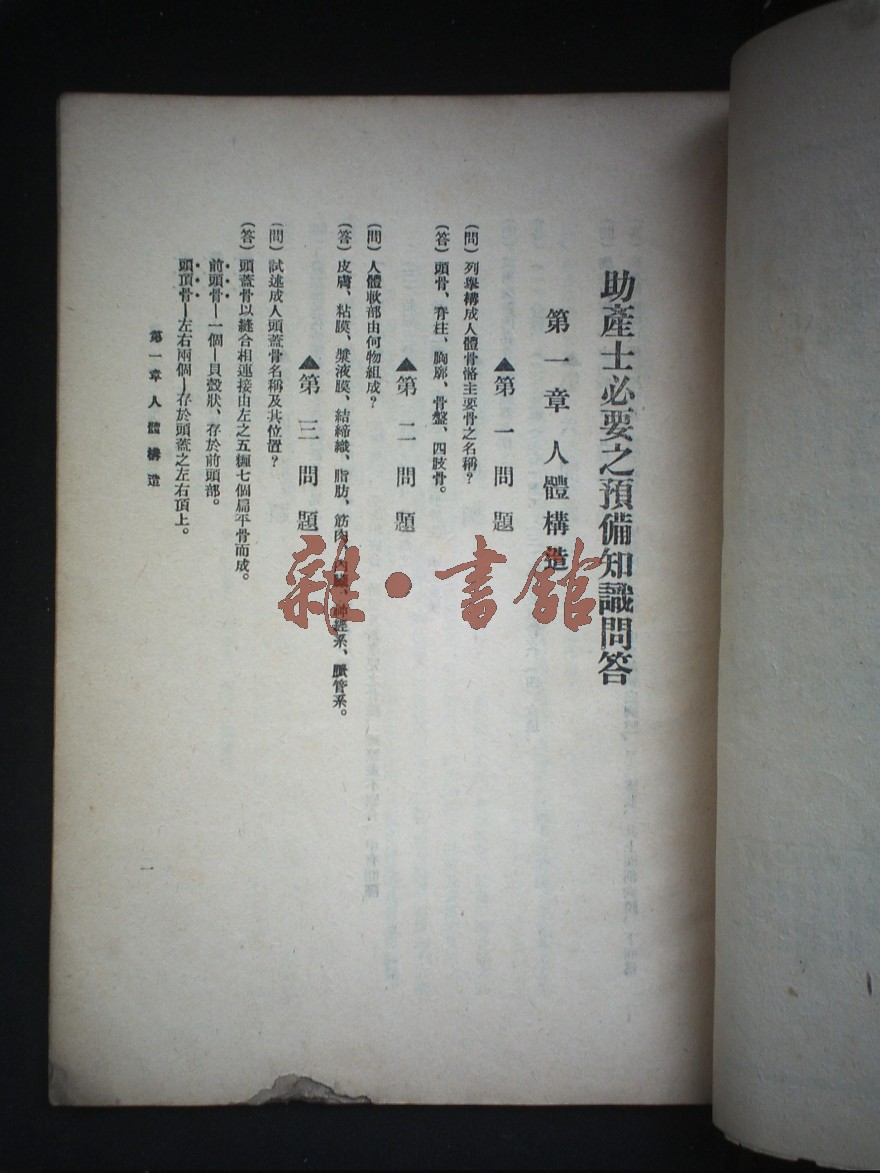 助產士必要之預備知識問答
第一章 人體構造
▲第一問題
(問)列舉構成人體骨骼主要骨之名稱?
(答)頭骨、脊柱、胸廓、骨盤、四肢骨。
▲第二問題
(問)人體軟部由何物組成?
(答)皮膚、粘膜、漿液膜、結締織、脂肪、筋肉、神經系、脈管系。
▲第三問題
(問)試述成人頭蓋骨名稱及其位置?
(答)頭蓋骨以縫合相連接由左之五種七個扁平骨而成。
前頭骨—一個—貝殼狀、存於前頭部。
頭頂骨—左右兩個—存於頭蓋之左右頂上。
第一章 人體構造
一
雜·書館